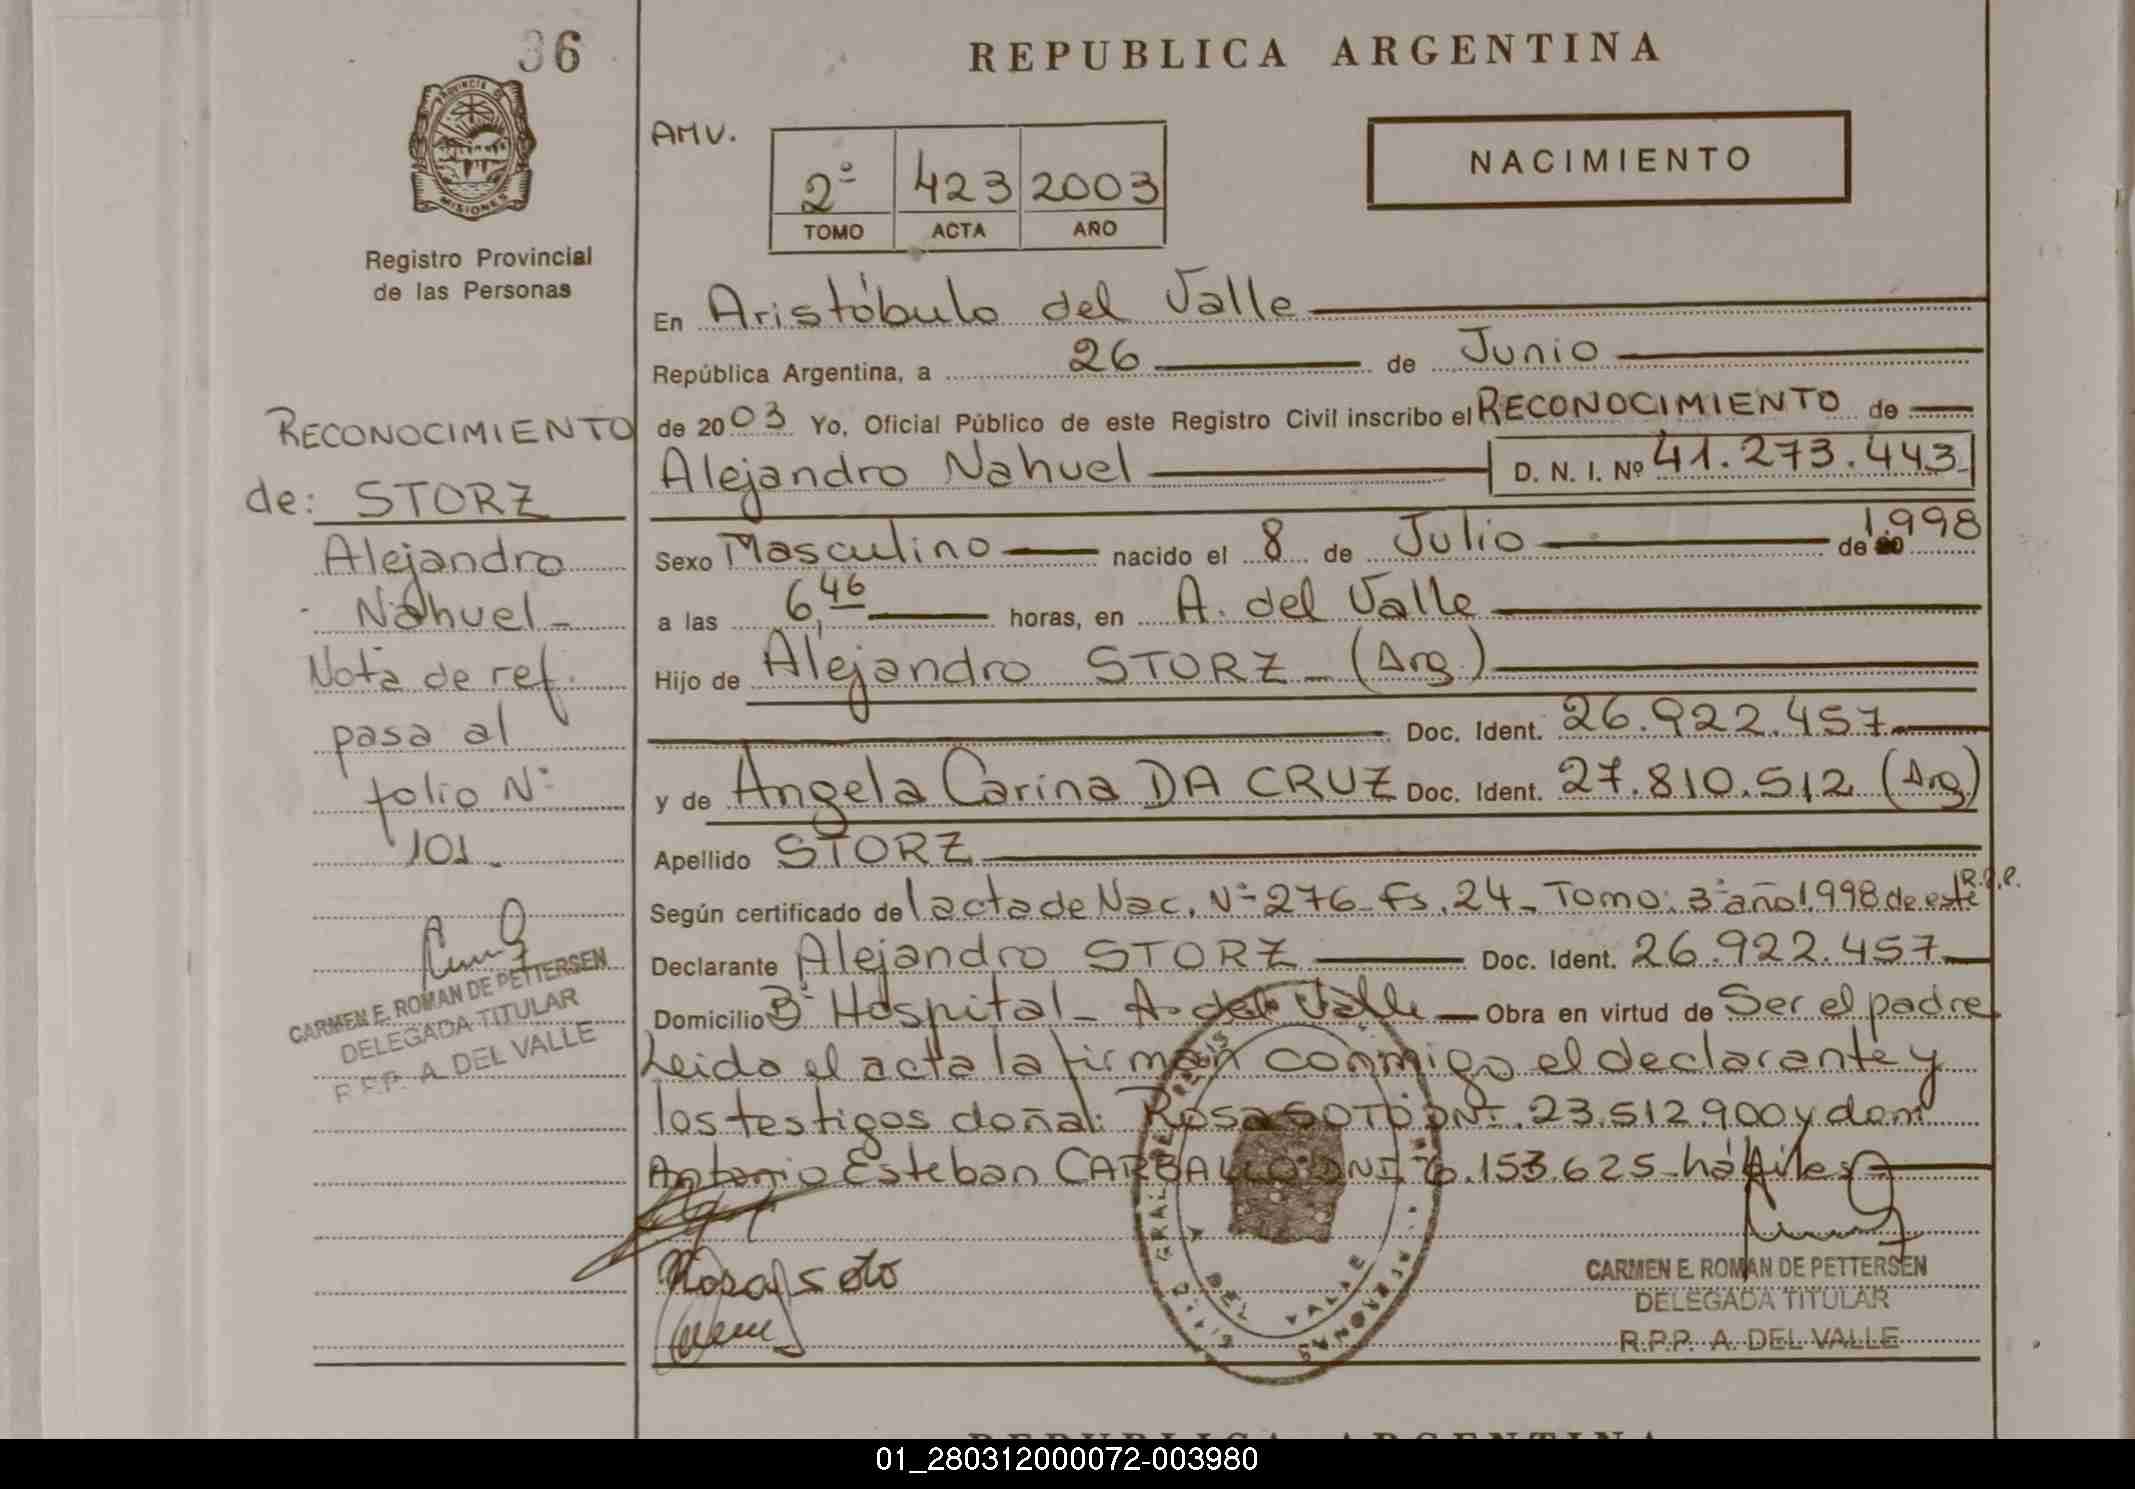 36
REPUBLICA ARGENTINA
PROVINCIA DE
MISIONES
Registro Provincial
de las Personas
AMV.
2º 423 2003
TOMO ACTA AÑO
NACIMIENTO
RECONOCIMIENTO
de: STORZ
Alejandro
Nahuel_
Nota de ref.
pasa al
folio Nº
101_
CARMEN E. ROMAN DE PETTERSEN
DELEGADA TITULAR
R.P.P. A. DEL VALLE
En Aristóbulo del Valle
República Argentina, a 26 de Junio
de 2003 Yo, Oficial Público de este Registro Civil inscribo el RECONOCIMIENTO de
Alejandro Nahuel D. N. I. Nº 41.273.443_
Sexo Masculino nacido el 8 de Julio de 1.998
a las 6,46 horas, en A. del Valle
Hijo de Alejandro STORZ_ (Arg.)
Doc. Ident. 26.922.457
y de Angela Carina DA CRUZ Doc. Ident. 27.810.512 (Arg)
Apellido STORZ
Según certificado de l acta de Nac. Nº 276_ Fs. 24_ Tomo: 3º año 1.998 de este R.P.P.
Declarante Alejandro STORZ Doc. Ident. 26.922.457
Domicilio Bº Hospital_ A. del Valle Obra en virtud de Ser el padre
Leido el acta la firman conmigo el declarante y
los testigos doña: Rosa SOTO DNI. 23.512.900 y don
Antonio Esteban CARBALLO DNI 6.153.625_ hábiles
Rosa Soto
A. DEL VALLE
CARMEN E. ROMAN DE PETTERSEN
DELEGADA TITULAR
R.P.P. A. DEL VALLE
REPUBLICA ARGENTINA
01_280312000072-003980